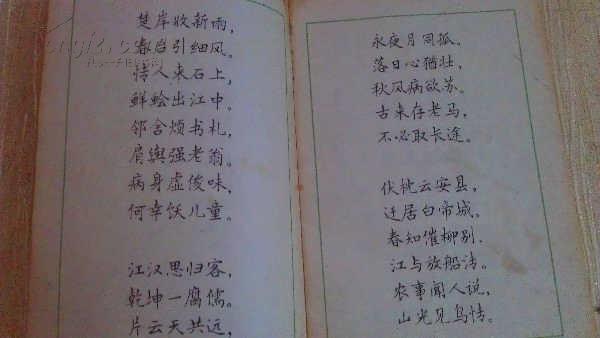 楚岸收新雨,
春台引细风。
情人来石上,
鲜鲙出江中。
邻舍烦书札,
肩舆强老翁。
病身虚俊味,
何幸饫儿童。
江汉思归客,
乾坤一腐儒。
片云天共远,
永夜月同孤。
落日心犹壮,
秋风病欲苏。
古来存老马,
不必取长途。
伏枕云安县,
迁居白帝城。
春知催柳别,
江与放船清。
农事闻人说,
山光见鸟情。